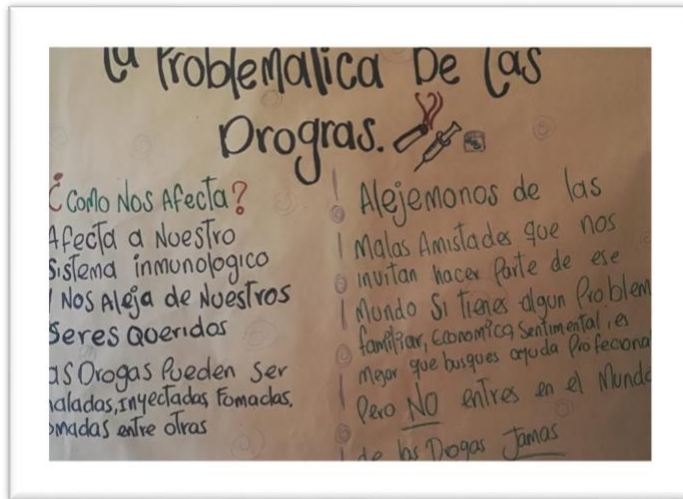 La Problematica De Las
Drogras.
¿Como Nos Afecta?
Afecta a Nuestro
Sistema inmunologico
Nos Aleja de Nuestros
Seres Queridos
as Drogas Pueden Ser
haladas, Inyectadas, Fomadas,
omadas entre otras
Alejemonos de las
Malas Amistades que nos
invitan hacer Parte de ese
Mundo Si tienes algun Problem
familiar, Economica, Sentimental, es
mejor que busques ayuda Profeciona
Pero NO entres en el Mundo
de las Drogas Jamas